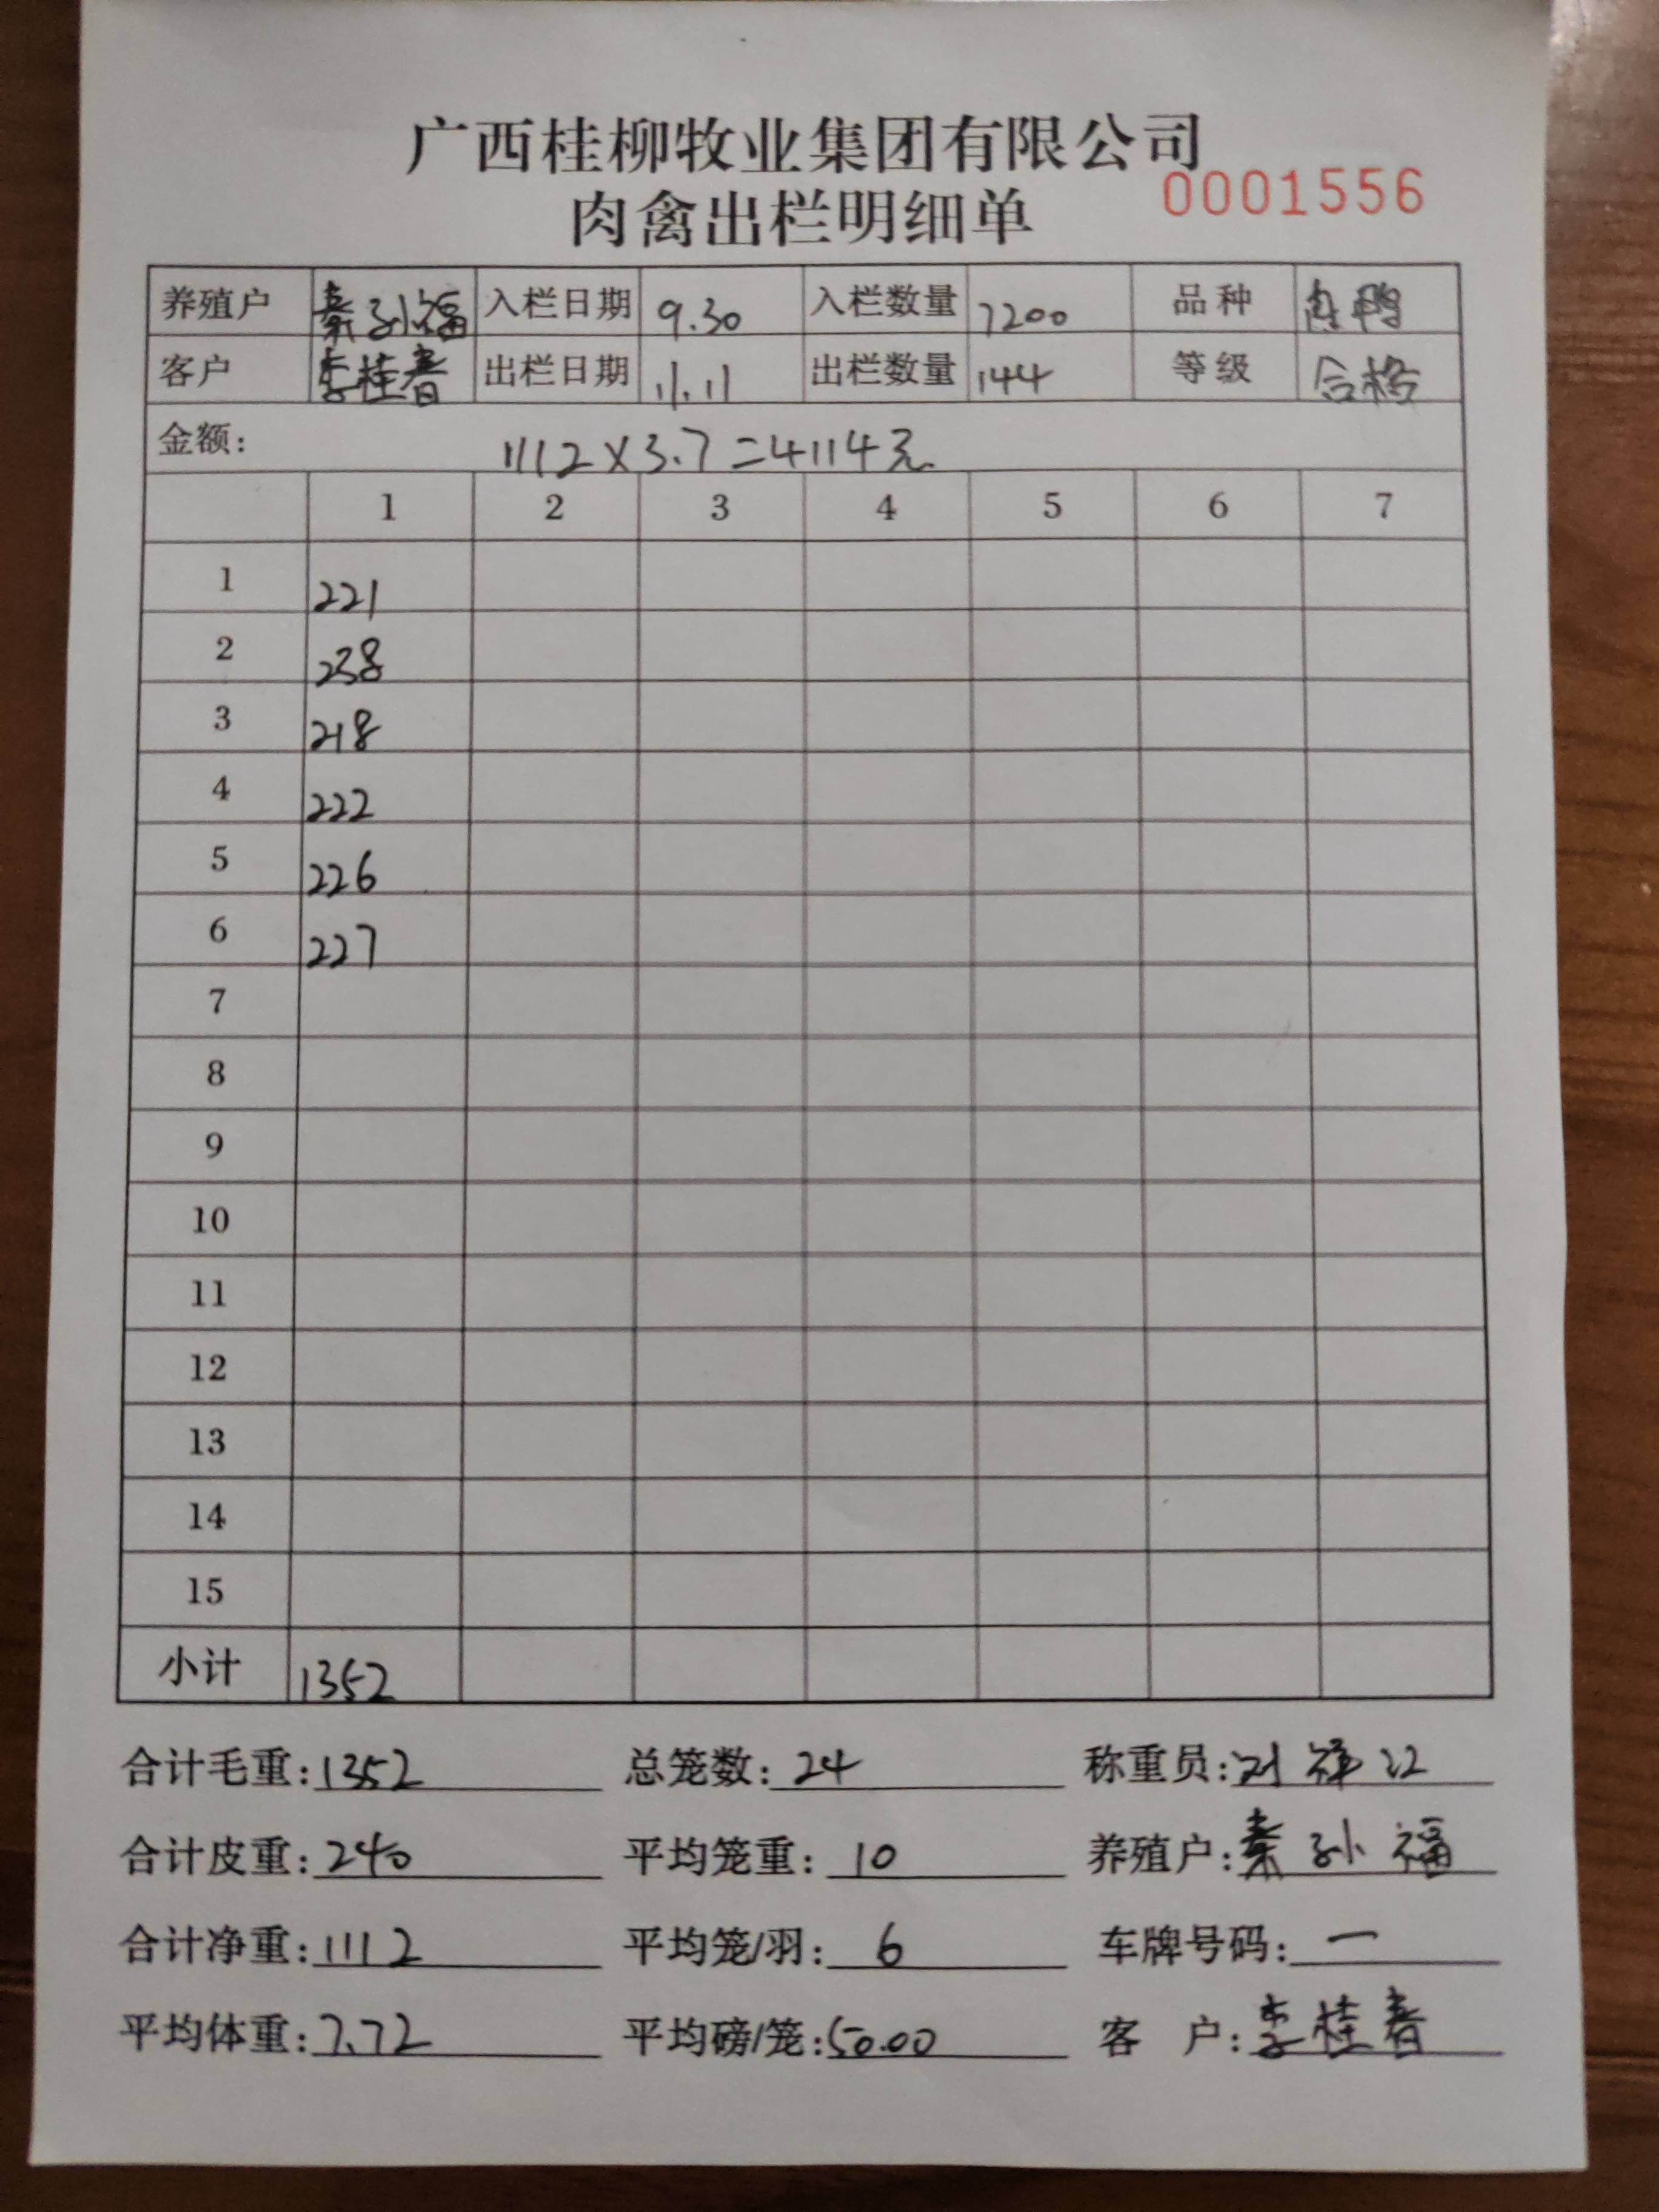 广西桂柳牧业集团有限公司
肉禽出栏明细单 0001556
养殖户 秦孙福 入栏日期 9.30 入栏数量 7200 品种 肉鸭
客户 李桂春 出栏日期 11.11 出栏数量 144 等级 合格
金额: 1112×3.7=4114元
1 2 3 4 5 6 7
1 221
2 238
3 218
4 222
5 226
6 227
7
8
9
10
11
12
13
14
15
小计 1352
合计毛重:1352 总笼数:24 称重员:刘祥江
合计皮重:240 平均笼重:10 养殖户:秦孙福
合计净重:1112 平均笼/羽:6 车牌号码:一
平均体重:7.72 平均磅/笼:50.00 客户:李桂春